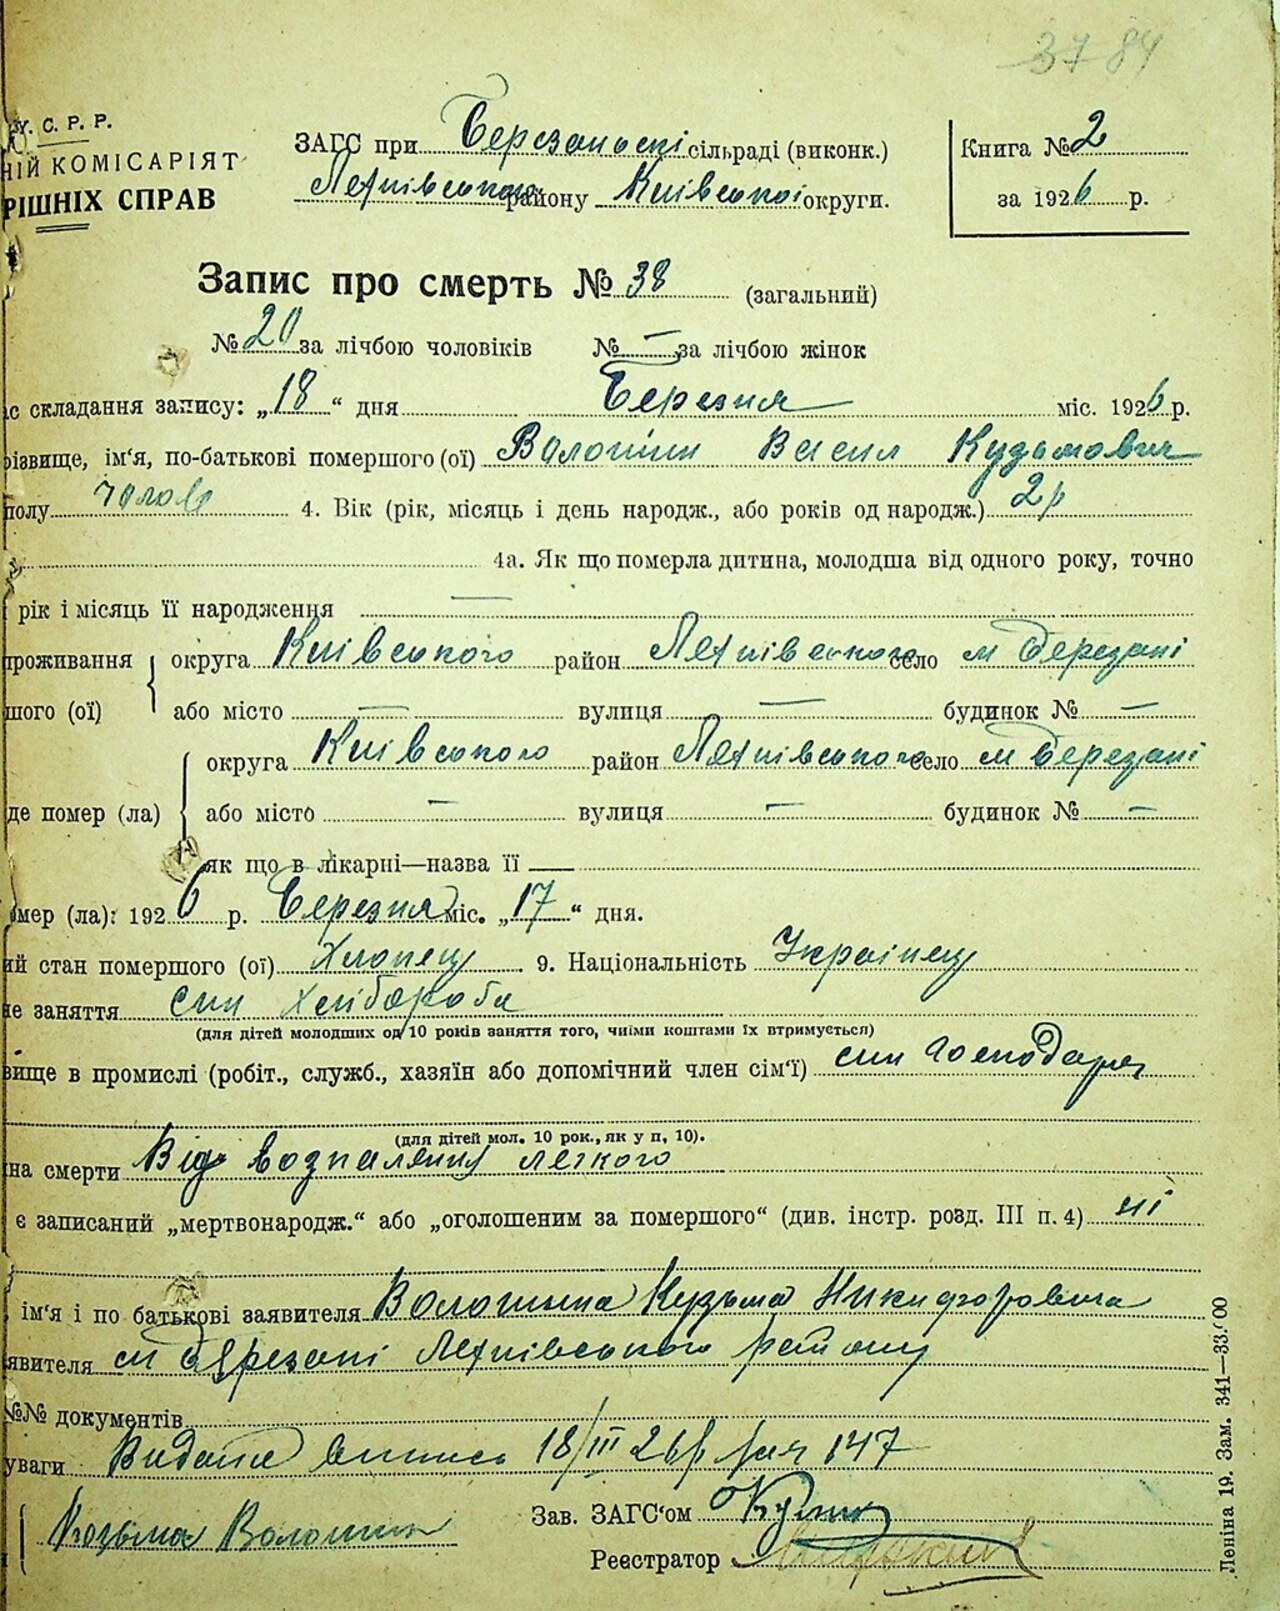 37 84
У. С. Р. Р.
НІЙ КОМІСАРІЯТ
РІШНІХ СПРАВ
ЗАГС при Березанські сільраді (виконк.)
району Київської округи.
Книга № 2
за 1926 р.
Запис про смерть № 38 (загальний)
№ 20 за лічбою чоловіків № — за лічбою жінок
ас складання запису: „18“ дня Березня міс. 1926 р.
різвище, ім'я, по-батькові помершого (ої) Волошин Васил Кузьмович
полу чолов 4. Вік (рік, місяць і день народж., або років од народж.) 2 р
4а. Як що померла дитина, молодша від одного року, точно
рік і місяць її народження —
проживання округа Київського район село м Березані
шого (ої) або місто — вулиця — будинок № —
округа Київського район село м Березані
де помер (ла) або місто — вулиця — будинок № —
як що в лікарні—назва її —
омер (ла): 1926 р. Березня міс. „17“ дня.
ий стан помершого (ої) Хлопець 9. Національність Українец
не заняття син Хлібороба
(для дітей молодших од 10 років заняття того, чиїми коштами їх втримується)
вище в промислі (робіт., служб., хазяїн або допомічний член сім'ї) син Господаря
(для дітей мол. 10 рок., як у п, 10).
на смерти Від возпаления легкого
є записаний „мертвонародж.“ або „оголошеним за помершого“ (див. інстр. розд. III п. 4) ні
ім'я і по батькові заявителя Волошина Кузьма Никифоровича
явителя м Березані району
№№ документів
уваги Видана випись 18/III 26 р 147
Кузьма Волошин
Зав. ЗАГС'ом
Реєстратор
Леніна 19. Зам. 341—33.000